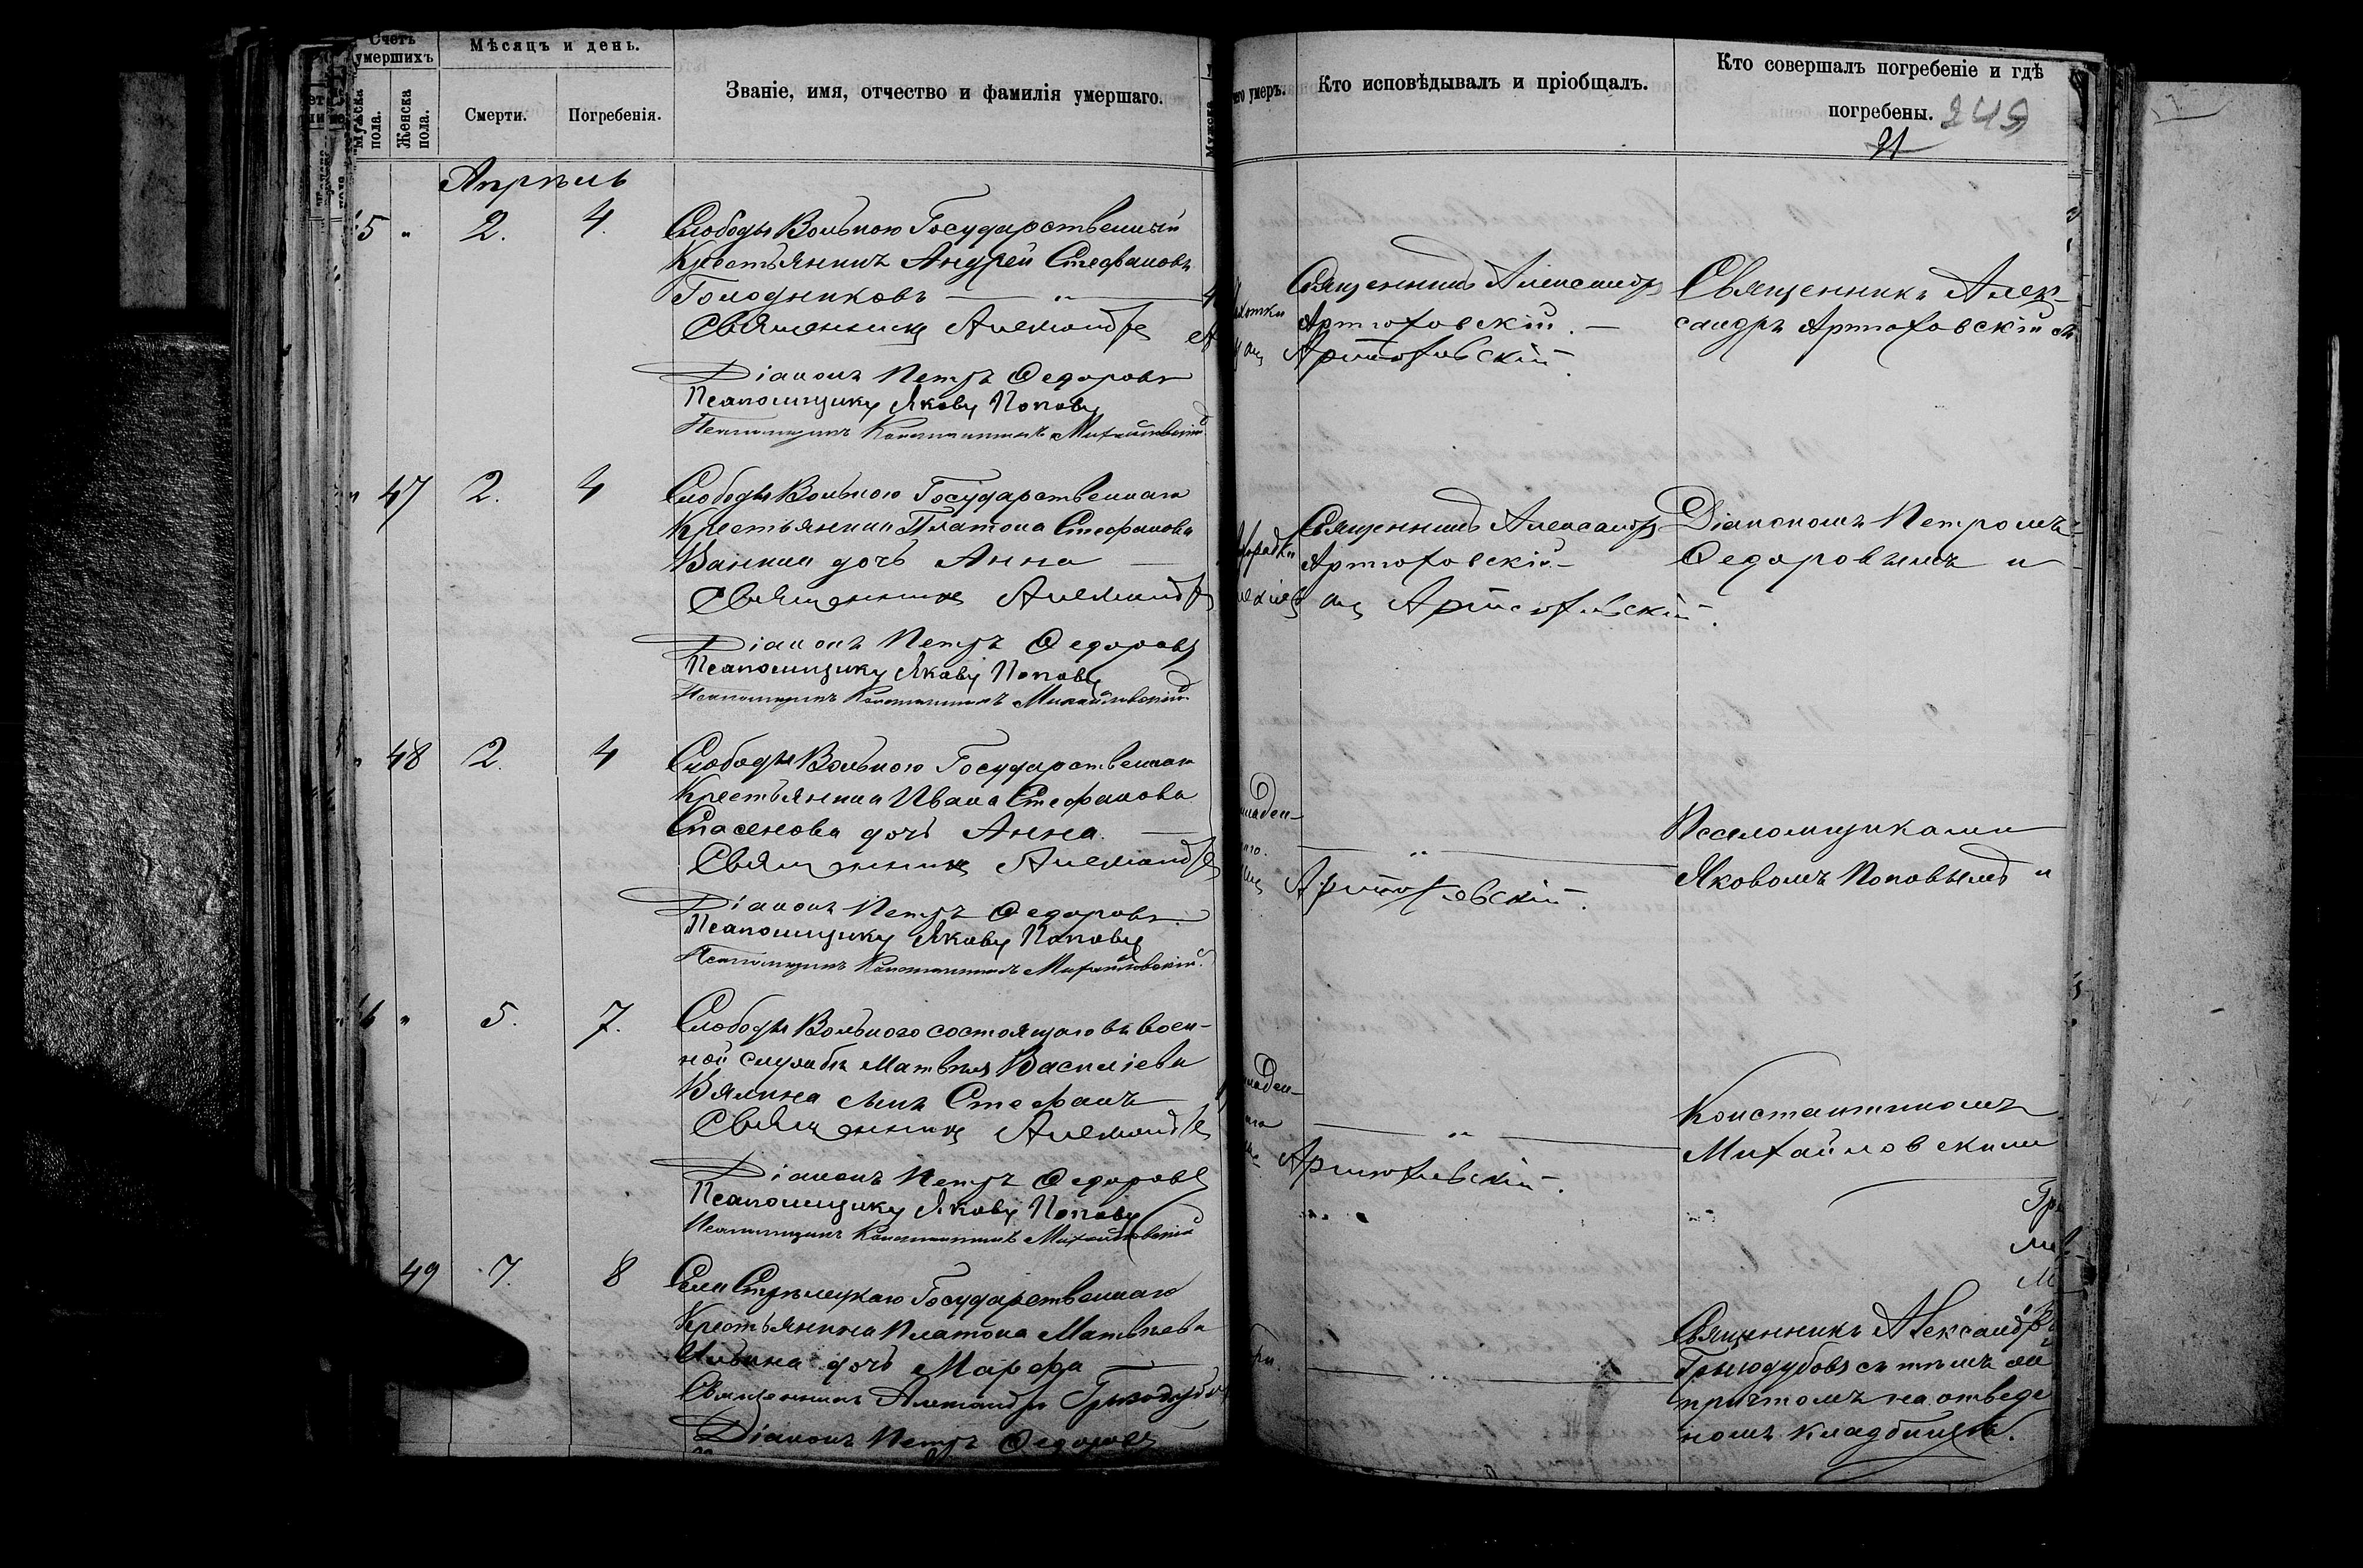 Счетъ умершихъ
Мѣсяцъ и день.
Званіе, имя, отчество и фамилія умершаго.
Мужска пола.
Женска пола.
Смерти.
Погребенія.
Апрѣль
5 " 2. 4. Слободы Вольного Государственный
Крестьянинъ Андрей Стефановъ
Голодниковъ — " —
Священникъ Александръ
Діаконъ Петръ Федоровъ
Псаломщикъ Яковъ Поповъ
Псаломщикъ Константинъ Михайловскій
" 47 2. 4 Слободы Вольного Государственнаго
Крестьянина Платона Стефанова
Ванина дочь Анна —
Священникъ Александръ
Діаконъ Петръ Федоровъ
Псаломщикъ Яковъ Поповъ
Псаломщикъ Константинъ Михайловскій
" 48 2. 4 Слободы Вольного Государственнаго
Крестьянина Ивана Стефанова
дочь Анна. —
Священникъ Александръ
Діаконъ Петръ Федоровъ
Псаломщикъ Яковъ Поповъ
Псаломщикъ Константинъ Михайловскій.
6 " 5. 7. Слободы Вольного состоящаго въ воен-
ной службѣ Матвѣя Василіева
Вялина сынъ Стефанъ
Священникъ Александръ
Діаконъ Петръ Федоровъ
Псаломщикъ Яковъ Поповъ
Псаломщикъ Константинъ Михайловскій
49 7. 8 Села Стрѣлецкаго Государственнаго
Крестьянина Платона Матвѣева
Ильина дочь Марфа —
Священникъ Александръ
Діаконъ Петръ Федоровъ
чего умеръ.
Кто исповѣдывалъ и пріобщалъ.
Кто совершалъ погребеніе и гдѣ
погребены.
249
21
Священникъ Александръ
Артюховскій. —
Артюховскій.
Священникъ Алек-
сандръ Артюховскій съ
Священникъ Александръ
Артюховскій —
Артюховскій.
Діакономъ Петромъ
Федоровымъ и
младен-
Артюховскій.
Псаломщиками
Яковомъ Поповымъ и
младен-
Артюховскій.
Константиномъ
Михайловскимъ
Священникъ Александръ
съ тѣмъ же
причтомъ на отведе
номъ кладбищѣ.